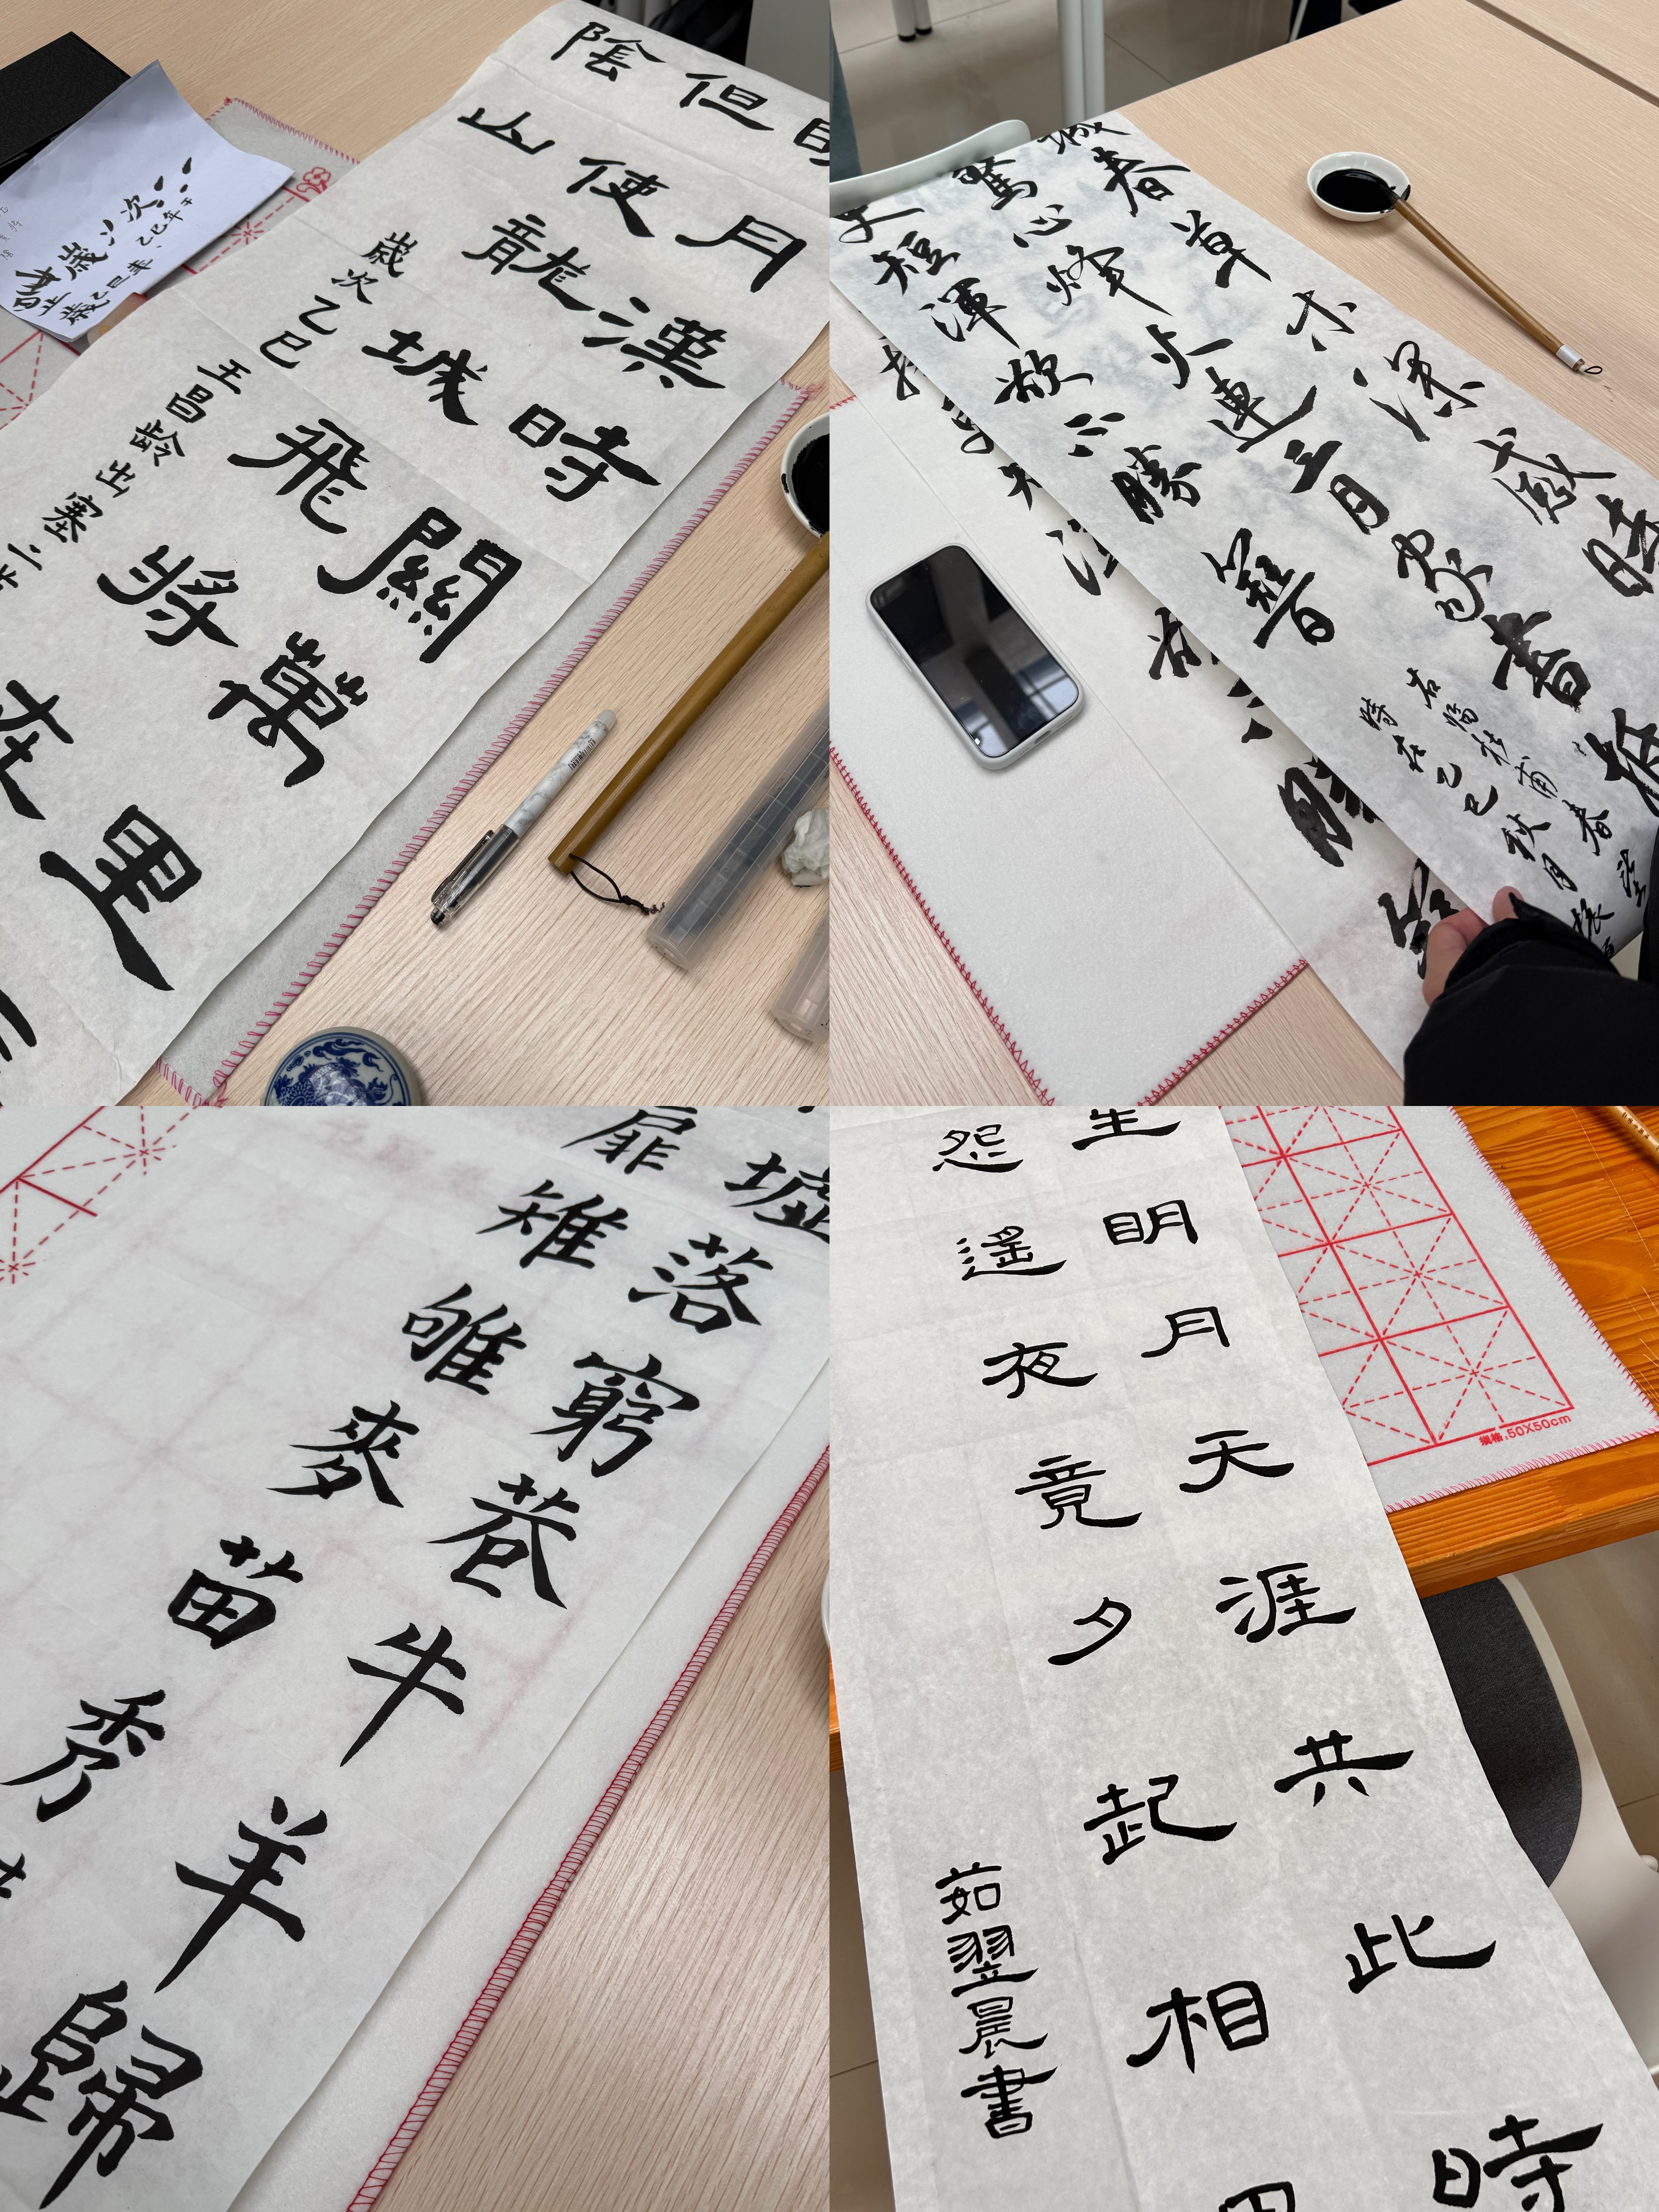 月漢時關萬里
但使龍城飛將在
陰山
歲次乙巳
王昌龄出塞二
歲次
乙巳年
城春草木深感時
驚心烽火連三月家書抵
短渾欲不勝簪
右錄杜甫春望
時在乙巳秋月
墟落窮巷牛羊歸
扉雉雊麥苗秀
生明月天涯共此時
怨遙夜竟夕起相
茹翌晨書
规格:50X50cm